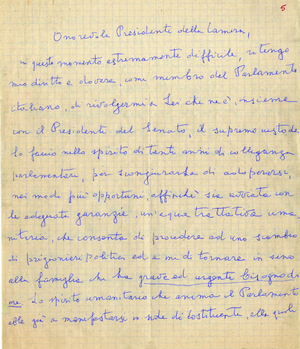 5
Onorevole Presidente della Camera,
in questo momento estremamente difficile, ritengo
mio diritto e dovere, come membro del Parlamento
italiano, di rivolgermi a Lei che ne è, insieme
con il Presidente del Senato, il supremo custode
Lo faccio nello spirito di tanti anni di colleganza
parlamentare, per scongiurarla di adoperarsi,
nei modi più opportuni, affinché sia avviata con
le adeguate garanzie, un'equa trattativa uma
nitaria, che consenta di procedere ad uno scambio
di prigionieri politici ed a me di tornare in seno
alla famiglia che ha grave ed urgente bisogno di
me. Lo spirito umanitario che anima il Parlamento
ebbe già a manifestarsi in sede di Costituente, alla quale